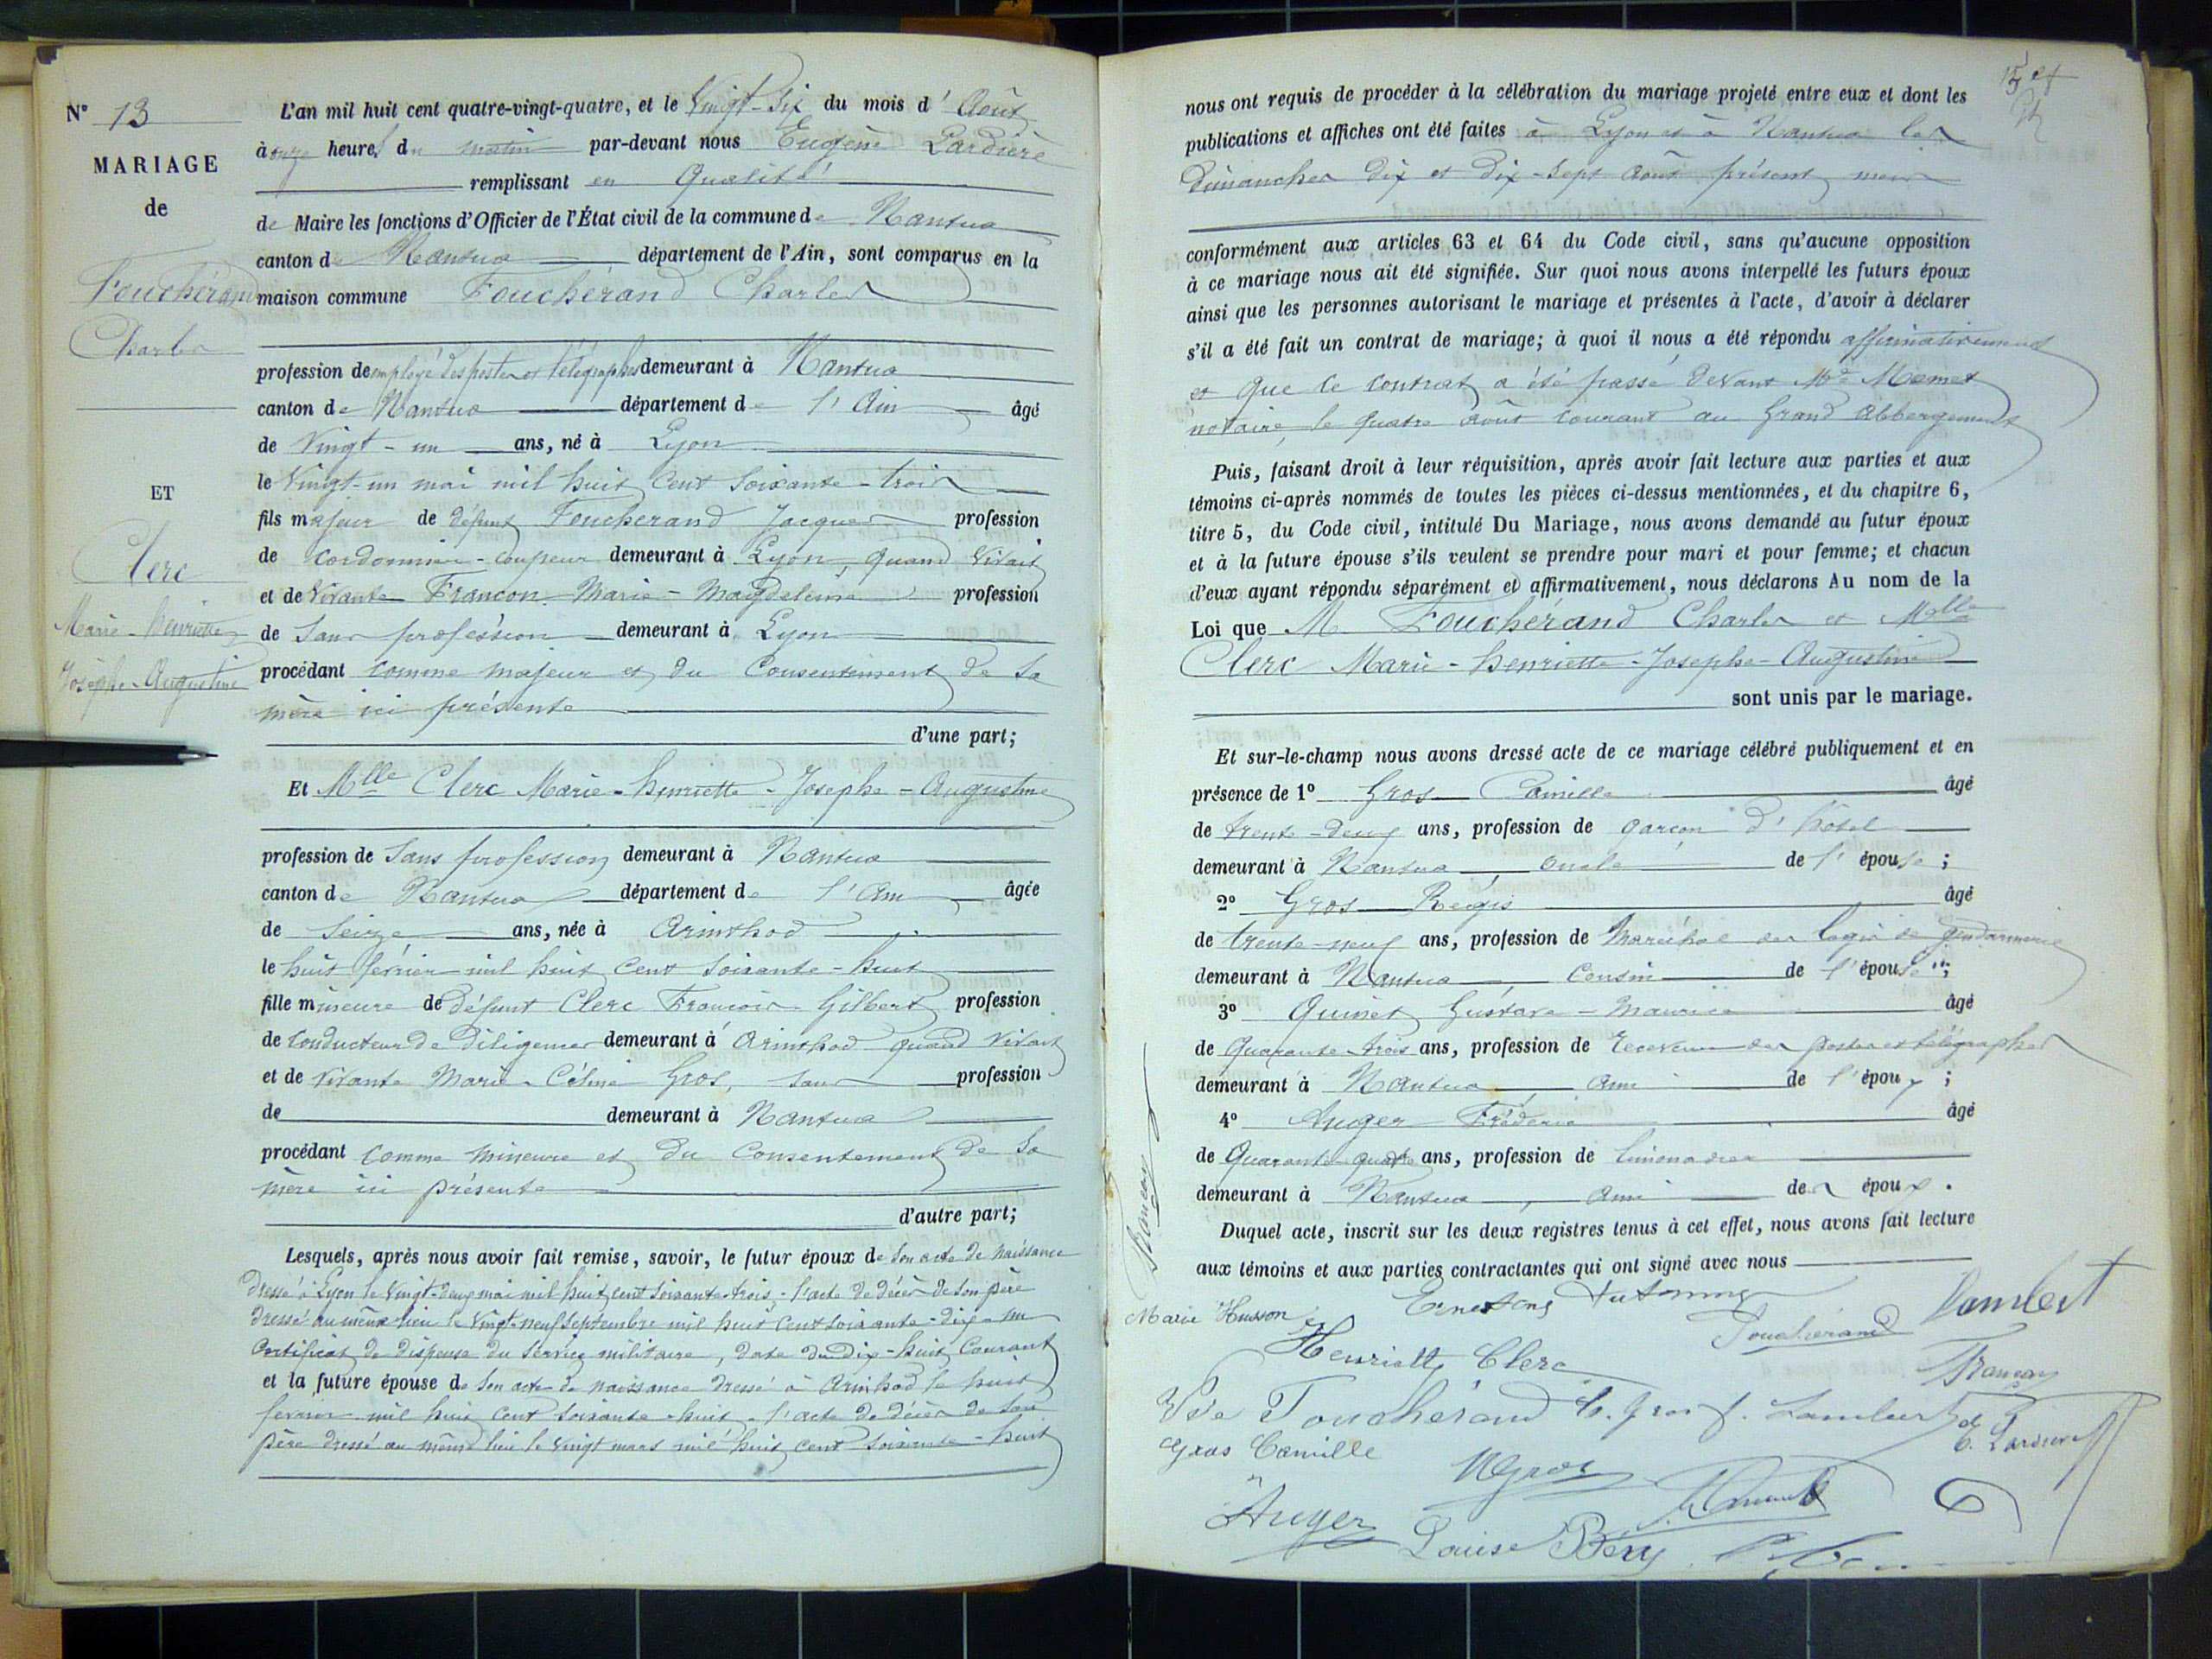 N° 13
MARIAGE
de
Fouchérand
Charles
ET
Clerc
Marie-Henriette
Josephe-Augustine
L'an mil huit cent quatre-vingt-quatre, et le Vingt-six du mois d'Août
à onze heures du matin par-devant nous Eugène Lardière
remplissant en Qualité
de Maire les fonctions d'Officier de l'État civil de la commune de Nantua
canton de Nantua département de l'Ain, sont comparus en la
maison commune Fouchérand Charles
profession de employé des postes et télégraphes demeurant à Nantua
canton de Nantua département de l'Ain âgé
de Vingt-un ans, né à Lyon
le Vingt-un mai mil huit cent soixante-trois
fils majeur de défunt Foucherand Jacques profession
de cordonnier-coupeur demeurant à Lyon, quand vivait
et de vivante Françon Marie-Magdeleine profession
de sans profession demeurant à Lyon
procédant comme majeur et du Consentement de sa
mère ici présente
d'une part;
Et Mlle Clerc Marie-Henriette-Josephe-Augustine
profession de sans profession demeurant à Nantua
canton de Nantua département de l'Ain âgée
de seize ans, née à Arinthod
le huit février mil huit cent soixante-huit
fille mineure de défunt Clerc François Gilbert profession
de conducteur de diligences demeurant à Arinthod quand vivait
et de vivante Marie-Céline Gros, sans profession
de demeurant à Nantua
procédant comme mineure et du consentement de sa
mère ici présente
d'autre part;
Lesquels, après nous avoir fait remise, savoir, le futur époux de son acte de naissance
dressé à Lyon le vingt-deux mai mil huit cent soixante-trois, - l'acte de décès de son père
dressé au même lieu le vingt-neuf septembre mil huit cent soixante-dix - un
certificat de dispense du service militaire, daté du dix-huit courant
et la future épouse de son acte de naissance dressé à Arinthod le huit
février mil huit cent soixante-huit - l'acte de décès de son
père dressé au même lieu le vingt mars mil huit cent soixante-huit
nous ont requis de procéder à la célébration du mariage projeté entre eux et dont les
publications et affiches ont été faites à Lyon et à Nantua les
dimanches dix et dix-sept août présent mois
conformément aux articles 63 et 64 du Code civil, sans qu'aucune opposition
à ce mariage nous ait été signifiée. Sur quoi nous avons interpellé les futurs époux
ainsi que les personnes autorisant le mariage et présentes à l'acte, d'avoir à déclarer
s'il a été fait un contrat de mariage; à quoi il nous a été répondu affirmativement
et que le contrat a été passé devant Me Mamet
notaire, le quatre août courant au Grand Abbergement
Puis, faisant droit à leur réquisition, après avoir fait lecture aux parties et aux
témoins ci-après nommés de toutes les pièces ci-dessus mentionnées, et du chapitre 6,
titre 5, du Code civil, intitulé Du Mariage, nous avons demandé au futur époux
et à la future épouse s'ils veulent se prendre pour mari et pour femme; et chacun
d'eux ayant répondu séparément et affirmativement, nous déclarons Au nom de la
Loi que M. Fouchérand Charles et Melle
Clerc Marie-Henriette-Josephe-Augustine
sont unis par le mariage.
Et sur-le-champ nous avons dressé acte de ce mariage célébré publiquement et en
présence de 1° Gros Camille âgé
de trente-deux ans, profession de garçon d'hôtel
demeurant à Nantua oncle de l'épouse;
2° Gros Régis âgé
de trente-neuf ans, profession de Maréchal des logis de gendarmerie
demeurant à Nantua, cousin de l'épouse;
3° Quinet Gustave-Maurice âgé
de Quarante-trois ans, profession de Receveur des postes et télégraphes
demeurant à Nantua, ami de l'époux;
4° Auger Fréderic âgé
de Quarante-quatre ans, profession de limonadier
demeurant à Nantua, ami des époux.
Duquel acte, inscrit sur les deux registres tenus à cet effet, nous avons fait lecture
aux témoins et aux parties contractantes qui ont signé avec nous
Françon
Marie Husson
Lambert
Henriette Clerc
Fouchérand
Françon
Vve Fouchérand
Lambert
E. Lardière
Gros Camille
Gros
Auger
Louise Bery